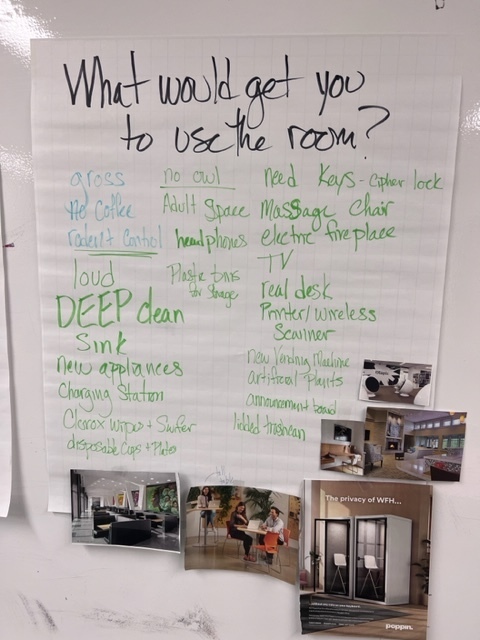 What would get you
to use the room?
gross
No Coffee
rodent Control
loud
DEEP clean
Sink
new appliances
Charging Station
Clorox wipes + Swifer
disposable Cups + Plates
no owl
Adult Space
headphones
Plastic bins
for Storage
need Keys - Cipher lock
Massage Chair
electric fireplace
TV
real desk
Printer/wireless
Scanner
new Vending Machine
artificial Plants
announcement board
lidded trashcan
The privacy of WFH...
poppin.